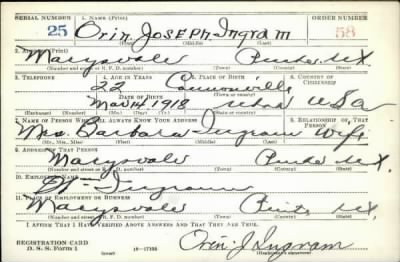 SERIAL NUMBER 1. NAME (Print) ORDER NUMBER
25 Orin Joseph Ingram 58
(First) (Middle) (Last)
2. ADDRESS (Print)
Marysvale
(Number and street or R. F. D. number) (Town) (County) (State)
3. TELEPHONE 4. AGE IN YEARS 5. PLACE OF BIRTH 6. COUNTRY OF CITIZENSHIP
22 Cannonville
DATE OF BIRTH (Town or county)
Mar 14 1918 U S A
(Exchange) (Number) (Mo.) (Day) (Yr.) (State or country)
7. NAME OF PERSON WHO WILL ALWAYS KNOW YOUR ADDRESS 8. RELATIONSHIP OF THAT PERSON
Mrs. Barbara Ingram Wife
(Mr., Mrs., Miss) (First) (Middle) (Last)
9. ADDRESS OF THAT PERSON
Marysvale
(Number and street or R. F. D. number) (Town) (County) (State)
10. EMPLOYER'S NAME
Ingram
11. PLACE OF EMPLOYMENT OR BUSINESS
Marysvale
(Number and street or R. F. D. number) (Town) (County) (State)
I AFFIRM THAT I HAVE VERIFIED ABOVE ANSWERS AND THAT THEY ARE TRUE.
REGISTRATION CARD
D. S. S. Form 1 (over) Orin J Ingram
(Registrant's signature)